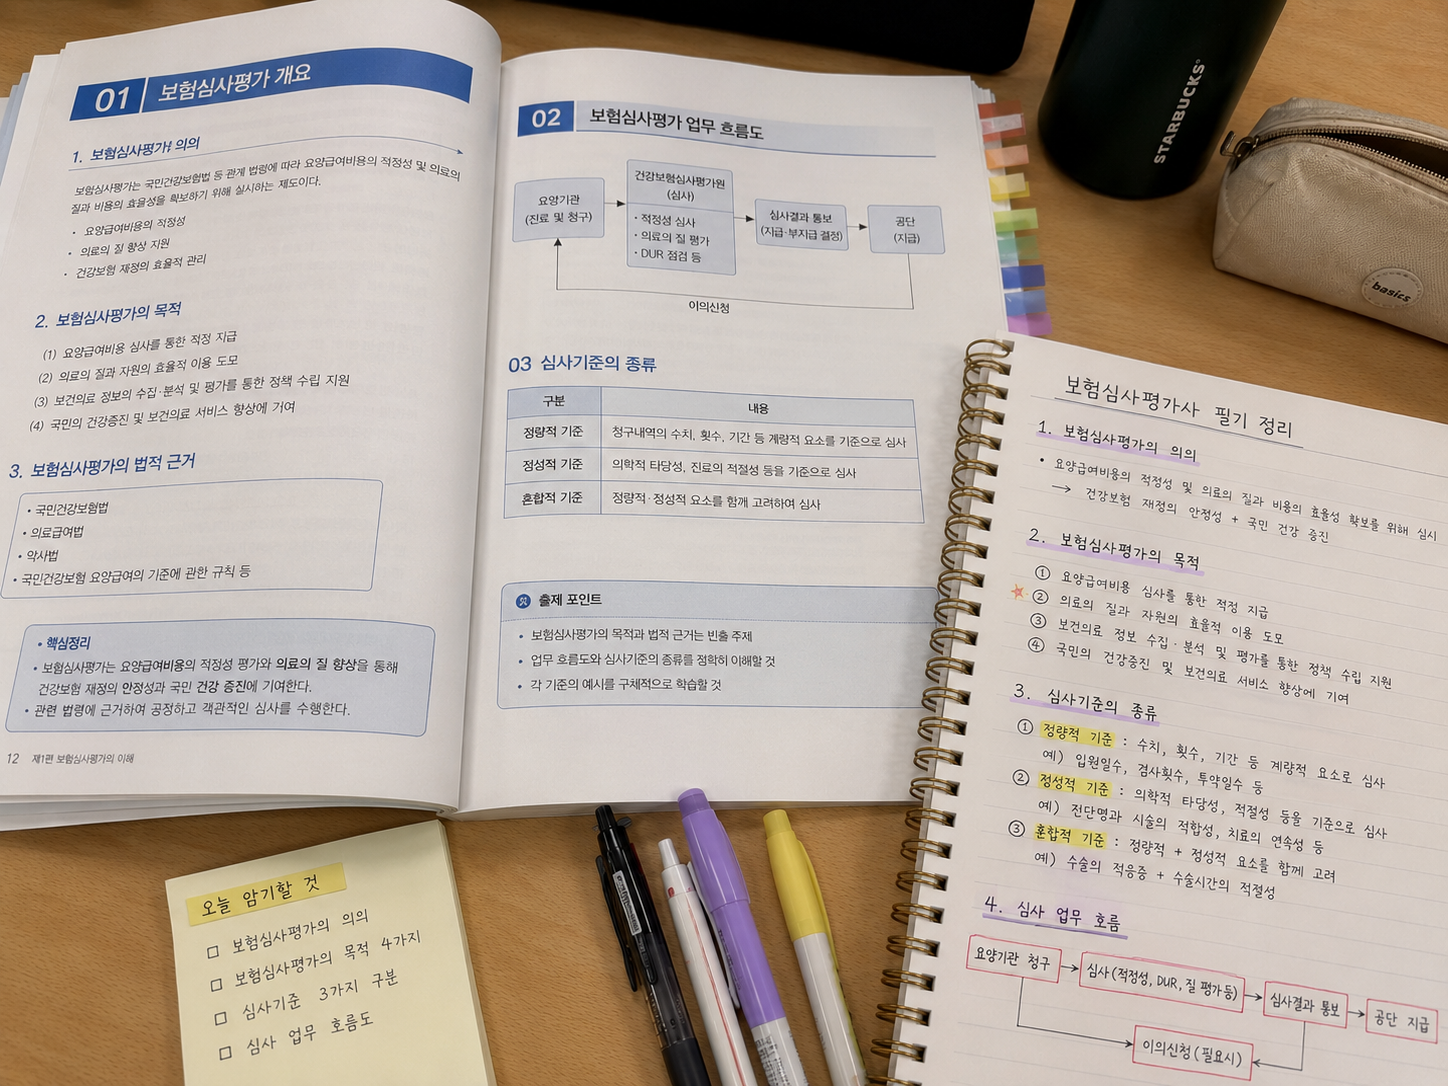 01 보험심사평가 개요
1. 보험심사평가! 의의
보험심사평가는 국민건강보험법 등 관계 법령에 따라 요양급여비용의 적정성 및 의료의
질과 비용의 효율성을 확보하기 위해 실시하는 제도이다.
• 요양급여비용의 적정성
• 의료의 질 향상 지원
• 건강보험 재정의 효율적 관리
2. 보험심사평가의 목적
(1) 요양급여비용 심사를 통한 적정 지급
(2) 의료의 질과 자원의 효율적 이용 도모
(3) 보건의료 정보의 수집·분석 및 평가를 통한 정책 수립 지원
(4) 국민의 건강증진 및 보건의료 서비스 향상에 기여
3. 보험심사평가의 법적 근거
• 국민건강보험법
• 의료급여법
• 약사법
• 국민건강보험 요양급여의 기준에 관한 규칙 등
• 핵심정리
• 보험심사평가는 요양급여비용의 적정성 평가와 의료의 질 향상을 통해
건강보험 재정의 안정성과 국민 건강 증진에 기여한다.
• 관련 법령에 근거하여 공정하고 객관적인 심사를 수행한다.
12 제1편 보험심사평가의 이해
02 보험심사평가 업무 흐름도
요양기관
(진료 및 청구)
건강보험심사평가원
(심사)
• 적정성 심사
• 의료의 질 평가
• DUR 점검 등
심사결과 통보
(지급·부지급 결정)
공단
(지급)
이의신청
03 심사기준의 종류
구분 내용
정량적 기준 청구내역의 수치, 횟수, 기간 등 계량적 요소를 기준으로 심사
정성적 기준 의학적 타당성, 진료의 적절성 등을 기준으로 심사
혼합적 기준 정량적·정성적 요소를 함께 고려하여 심사
출제 포인트
• 보험심사평가의 목적과 법적 근거는 빈출 주제
• 업무 흐름도와 심사기준의 종류를 정확히 이해할 것
• 각 기준의 예시를 구체적으로 학습할 것
STARBUCKS
basics
보험심사평가사 필기 정리
1. 보험심사평가의 의의
• 요양급여비용의 적정성 및 의료의 질과 비용의 효율성 확보를 위해 심시
→ 건강보험 재정의 안정성 + 국민 건강 증진
2. 보험심사평가의 목적
① 요양급여비용 심사를 통한 적정 지급
② 의료의 질과 자원의 효율적 이용 도모
③ 보건의료 정보 수집·분석 및 평가를 통한 정책 수립 지원
④ 국민의 건강증진 및 보건의료 서비스 향상에 기여
3. 심사기준의 종류
① 정량적 기준 : 수치, 횟수, 기간 등 계량적 요소로 심사
예) 입원일수, 겸사횟수, 투약일수 등
② 정성적 기준 : 의학적 타당성, 적절성 등을 기준으로 심사
예) 전단명과 시술의 적합성, 치료의 연속성 등
③ 혼합적 기준 : 정량적 + 정성적 요소를 함께 고려
예) 수술의 적응증 + 수술시간의 적절성
4. 심사 업무 흐름
요양기관 청구
심사(적정성, DUR, 질 평가등)
심사결과 통보
공단 지급
이의신청(필요시)
오늘 암기할 것
□ 보험심사평가의 의의
□ 보험심사평가의 목적 4가지
□ 심사기준 3가지 구분
□ 심사 업무 흐름도